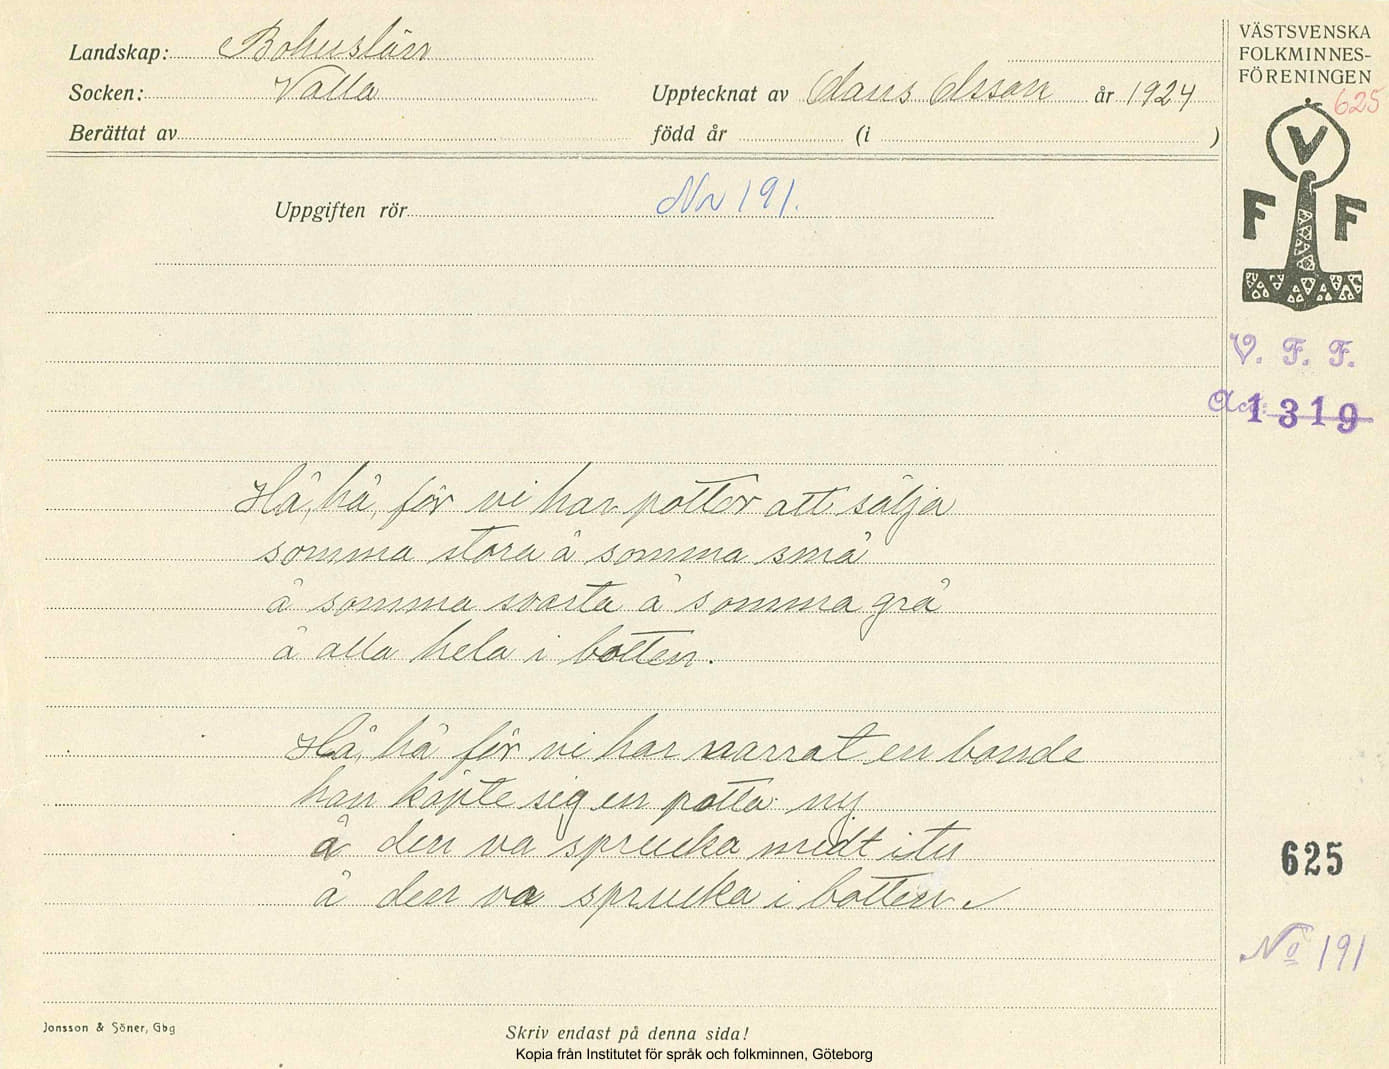 Landskap: Bohuslän
Socken: Valla
Upptecknat av Claus Olsson år 1924
Berättat av
född år (i )
VÄSTSVENSKA
FOLKMINNES-
FÖRENINGEN
625
V
F F
Uppgiften rör Nr 191.
V. F. F.
Acc: 1319
Hå, hå, för vi har pottor att sälja
somma stora å somma små
å somma svarta å somma grå
å alla hela i botten.
Hå, hå för vi har narrat en bonde
han köpte sig en potta ny
å den va sprucka midt itu
å den va sprucka i botten.
625
No 191
Jonsson & Söner, Gbg
Skriv endast på denna sida!
Kopia från Institutet för språk och folkminnen, Göteborg